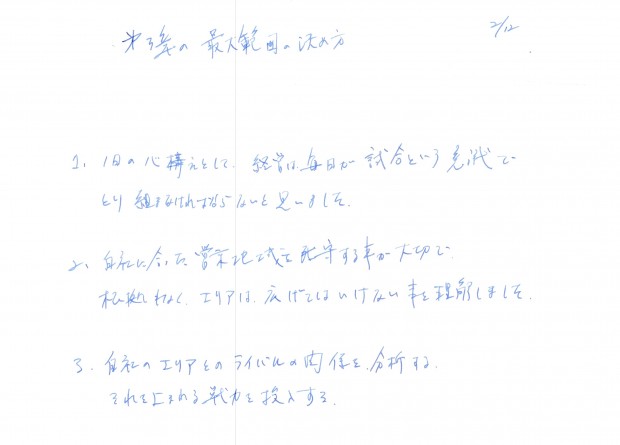 第3集の最大範囲の決め方
2/12
1、1日の心構えとして、経営は毎日が試合という意識で
とり組まなければならないと思いました。
2、自社に合った営業地域を死守する事が大切で
根拠もなく、エリアは、広げてはいけない事を理解しました。
3、自社のエリアとのライバルの関係を分析する。
それを上まわる戦力を投入する。